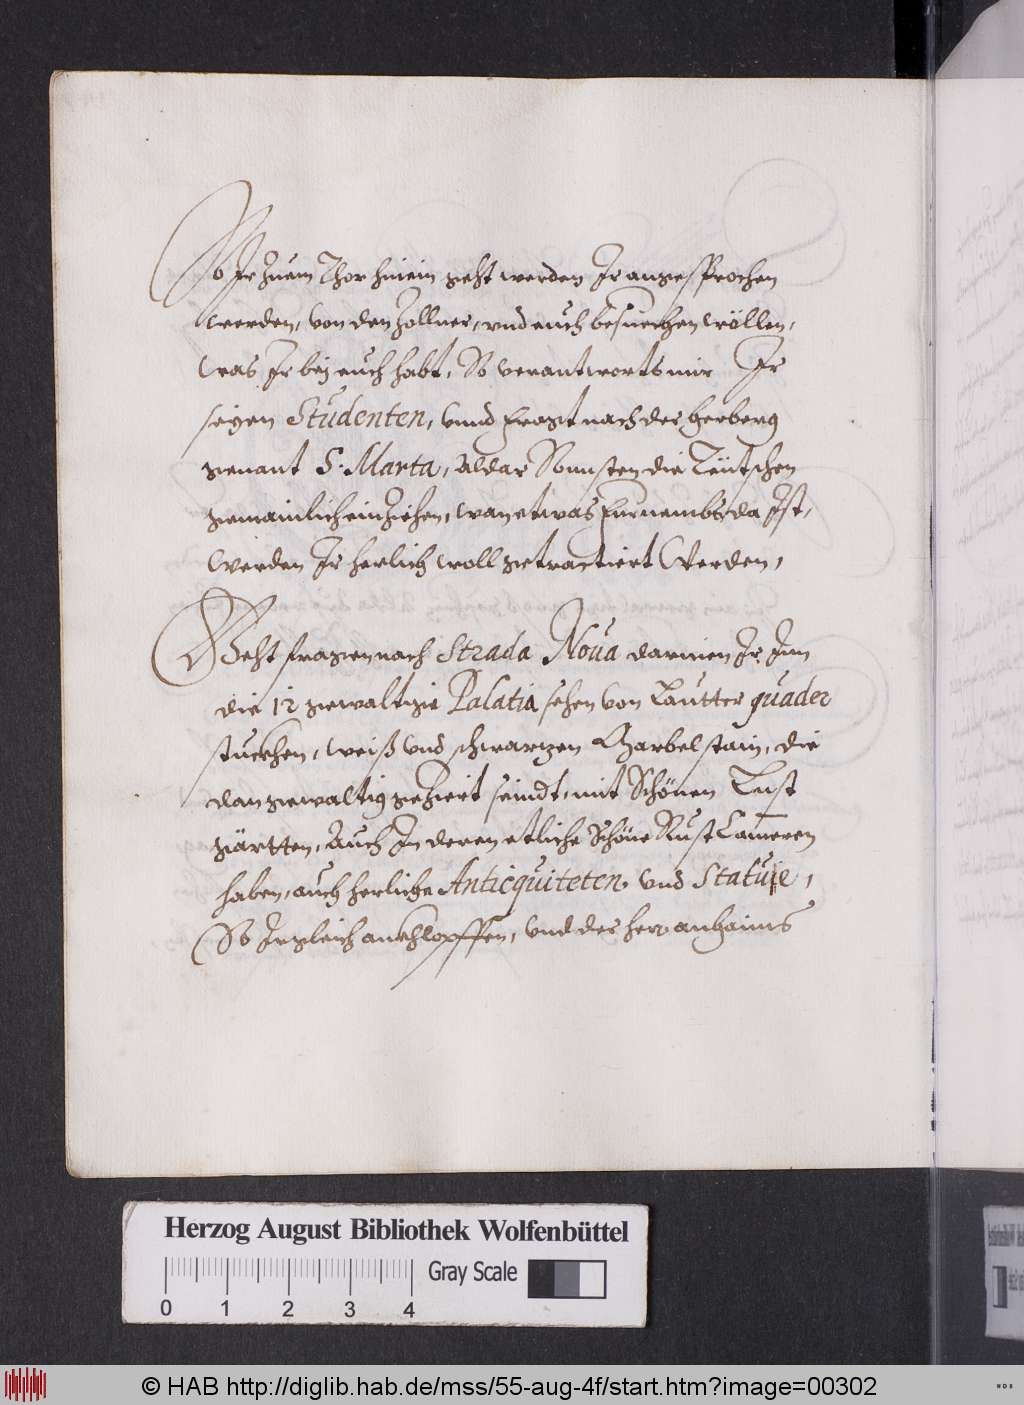 So Ir zuem Thor hinein geht werden Ir angesprochen
werden, von den Zollner, vnd euch besuechen wöllen,
was Ir bej euch habt, So verantworts nur Ir
seyen Studenten, vnnd fragt nach der herberg
genant S. Marta, Aldar Sonnsten die Teütschen
gemainlich einziehen, wan etwas fürnembs da Ist,
werden Ir herlich woll getractiert werden,
Geht fragen nach Strada Noua darinen Ir Inn
die 12 gewaltige Palatia sehen von Lautter quader
stuckhen, weiß vnd schwartzen Marbelstain, die
dan gewaltig geziert seindt, mit Schönen Lust
gärtten, Auch In deren etliche Schöne Rust Cameren
haben, auch herliche Anticquiteten, vnd Statuie,
So Ir gleich ankhlopffen, vnd der herr anhaims
Herzog August Bibliothek Wolfenbüttel
Gray Scale
0 1 2 3 4
© HAB http://diglib.hab.de/mss/55-aug-4f/start.htm?image=00302